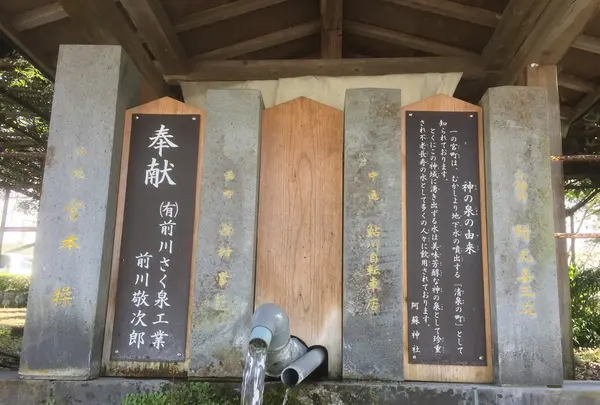 神の泉の由来
一の宮町は、むかしより地下水の噴出する「清泉の町」として
知られております。
とくにこの神域に湧き出ずる水は美味芳醇な神の泉として珍重
され不老長寿の水として多くの人々に飲用されております。
阿蘇神社
中通
鮎川自転車店
奉献
(有)前川さく泉工業
前川敬次郎
宮本